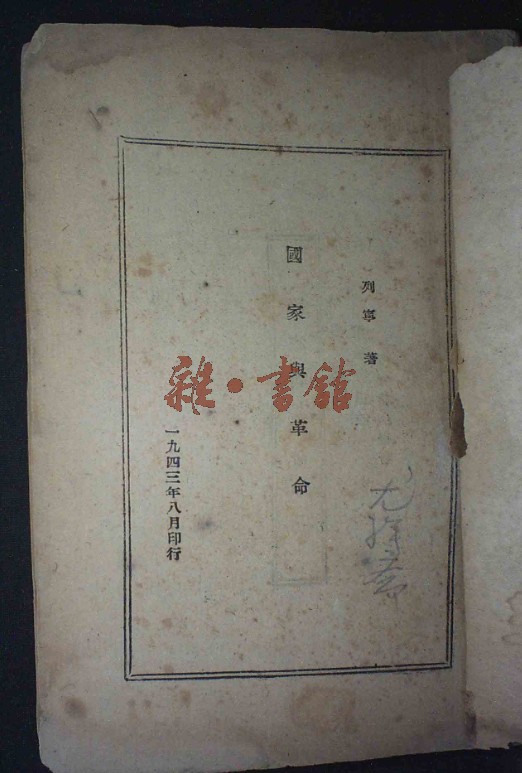 列寧 著
國家與革命
一九四三年八月印行
雜·書館